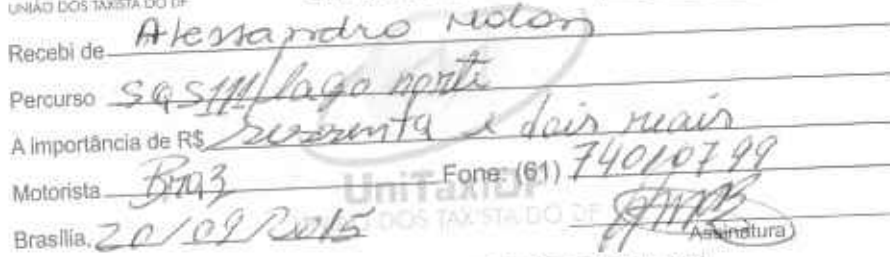 UNIÃO DOS TAXISTA DO DF
Recebi de Alessandro Molon
Percurso SQS 111/Lago norte
A importância de R$ sessenta e dois reais
Motorista Braz Fone: (61) 74010799
UniTaxiDF
Brasília, 20/09/2015
DOS TAXISTA DO DF
Assinatura